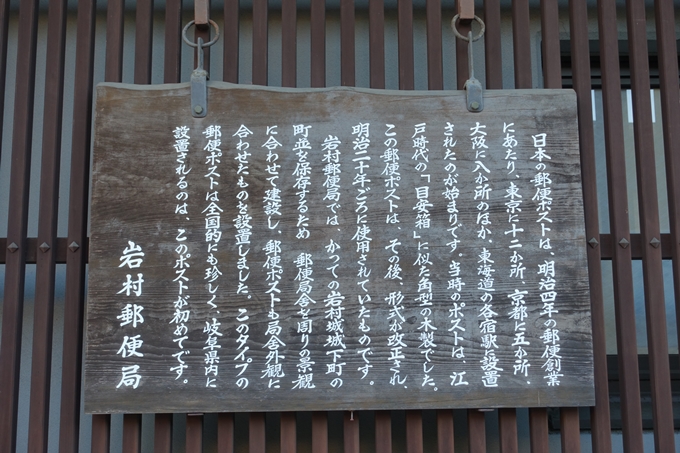 日本の郵便ポストは、明治四年の郵便創業
にあたり、東京に十二か所、京都に五か所、
大阪に八か所のほか、東海道の各宿駅に設置
されたのが始まりです。当時のポストは、江
戸時代の「目安箱」に似た角型の木製でした。
この郵便ポストは、その後、形式が改正され
明治二十年ごろに使用されていたものです。
岩村郵便局では、かつての岩村城城下町の
町並を保存するため　郵便局舎を周りの景観
に合わせて建設し、郵便ポストも局舎外観に
合わせたものを設置しました。このタイプの
郵便ポストは全国的にも珍しく、岐阜県内に
設置されるのは、このポストが初めてです。
岩村郵便局